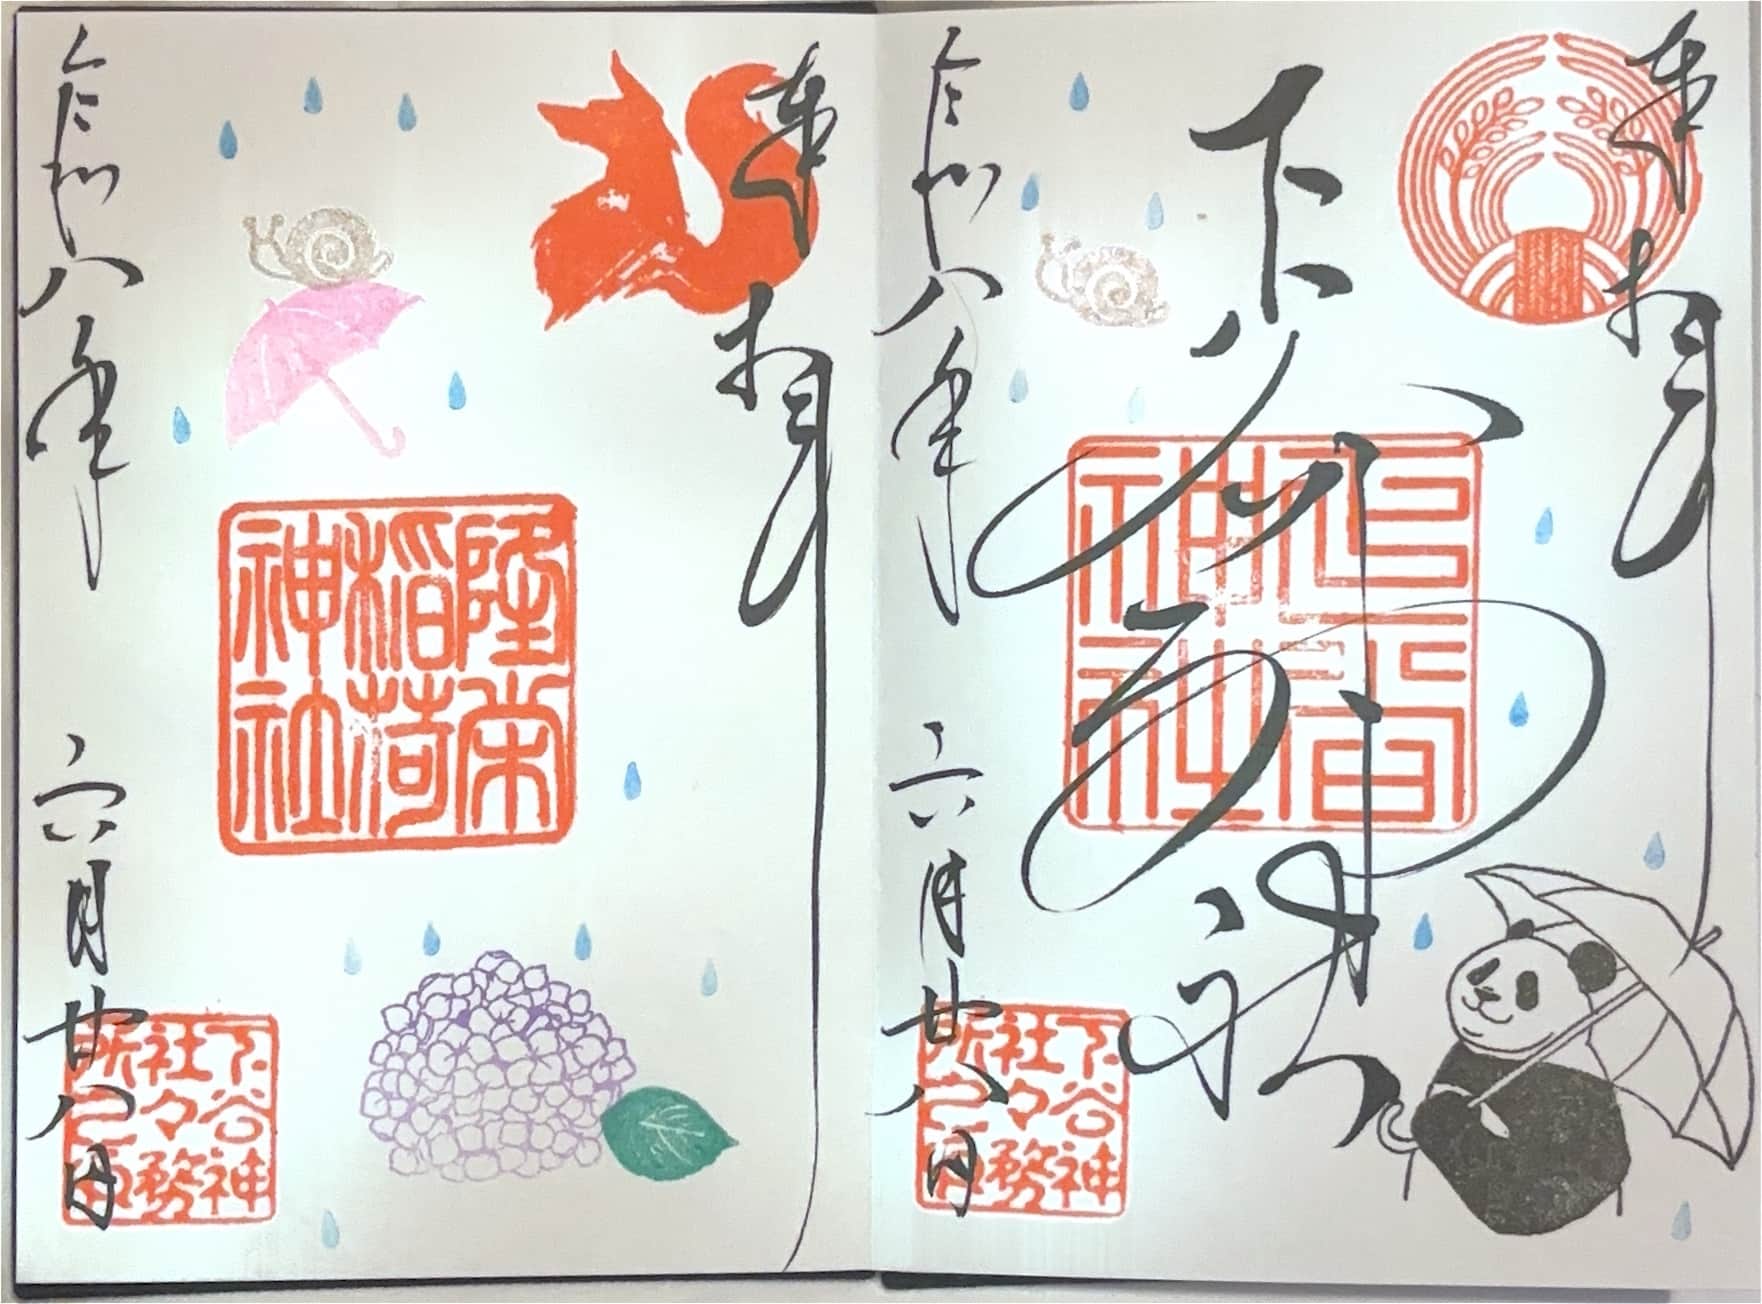 奉拝
下谷神社
下谷
神社
令和八年 六月廿八日
下谷神
社々務
所之印
奉拝
隆栄
稲荷
神社
令和八年 六月廿八日
下谷神
社々務
所之印